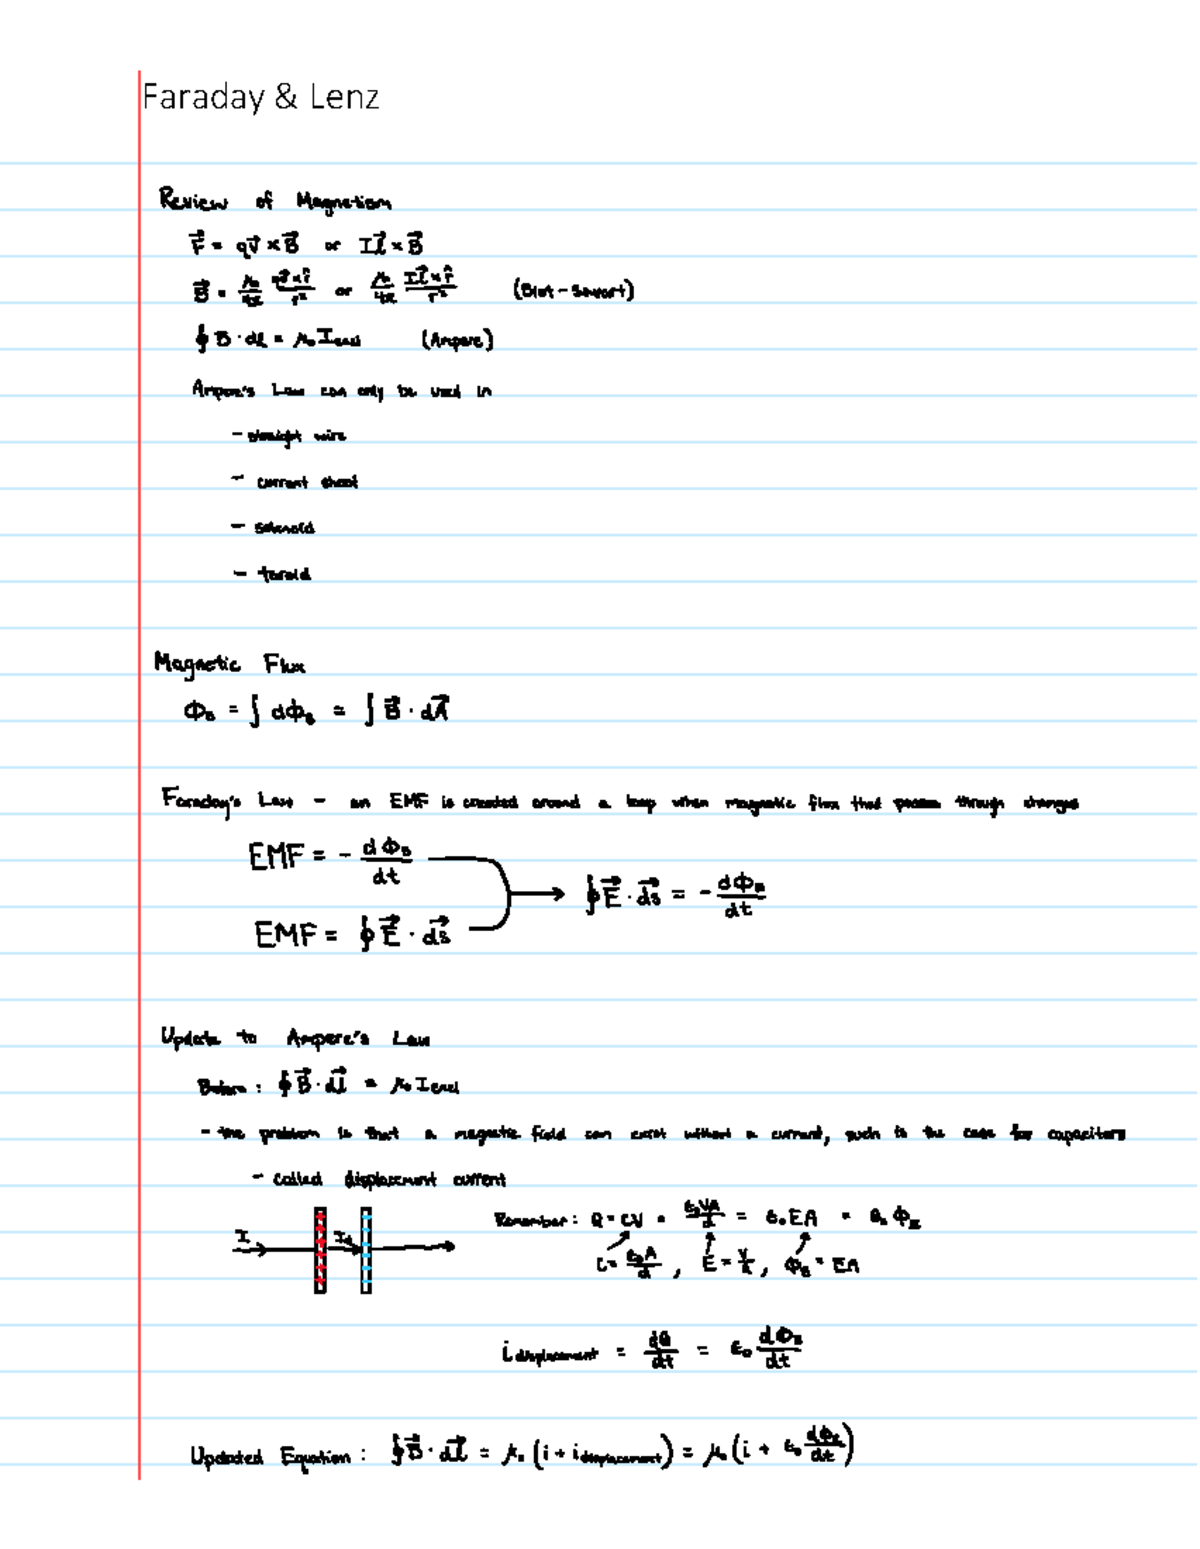 Faraday & Lenz
Review of Magnetism
F⃗ = qv⃗ × B⃗ or Il⃗ × B⃗
B⃗ = μ₀/4π qv⃗×r̂/r² or μ₀/4π Il⃗×r̂/r² (Biot-Savart)
∮ B · dl = μ₀ Iencl (Ampere)
Ampere's Law can only be used in
- straight wire
- current sheet
- solenoid
- toroid
Magnetic Flux
Φ_B = ∫ dΦ_B = ∫ B⃗ · dA⃗
Faraday's Law - an EMF is created around a loop when magnetic flux that passes through changes
EMF = - dΦ_B/dt
∮ E⃗ · ds⃗ = - dΦ_B/dt
EMF = ∮ E⃗ · ds⃗
Update to Ampere's Law
Before: ∮ B⃗ · dl⃗ = μ₀ Iencl
- the problem is that a magnetic field can exist without a current, such is the case for capacitors
- called displacement current
I I_d
Remember: Q = CV = ε₀VA/d = ε₀EA = ε₀Φ_E
C = ε₀A/d , E = V/d , Φ_E = EA
i displacement = dQ/dt = ε₀ dΦ_E/dt
Updated Equation: ∮ B⃗ · dl⃗ = μ₀ (i + i displacement) = μ₀ (i + ε₀ dΦ_E/dt)